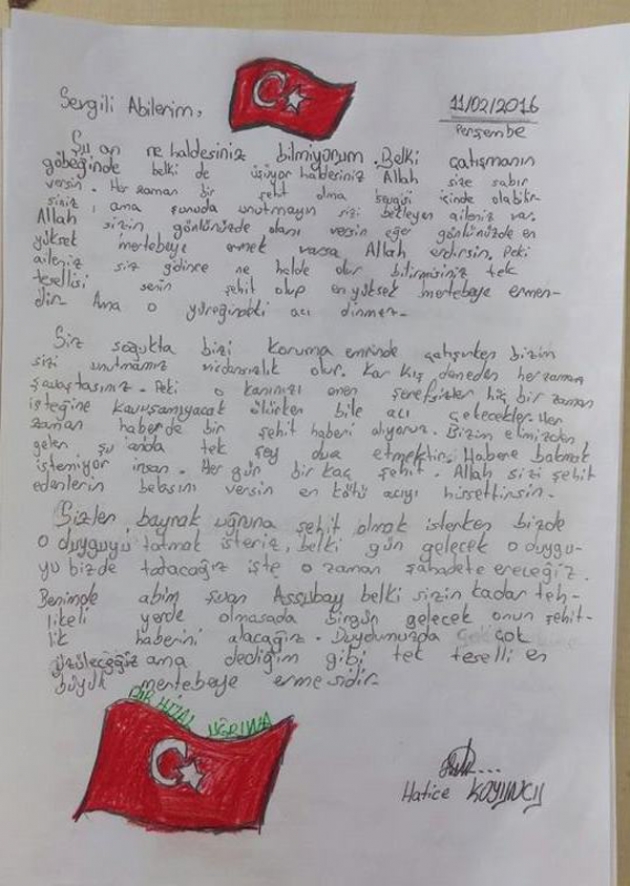 Sevgili Abilerim,
11/02/2016
Perşembe
Şu an ne haldesiniz bilmiyorum. Belki çatışmanın
göbeğinde belki de üşüyor haldesiniz Allah size sabır
versin. Her zaman bir şehit olma sevgisi içinde olabilir-
siniz, ama şunuda unutmayın sizi bekleyen aileniz var.
Allah sizin gönlünüzde olanı versin eğer gönlünüzde en
yüksek mertebeye ermek varsa Allah erdirsin. Peki
aileniz siz gidince ne halde olur bilirmisiniz tek
tesellisi senin şehit olup en yüksek mertebeye ermen-
dir. Ama o yüreğindeki acı dinmez.
Siz soğukta bizi koruma emrinde çatışırken bizim
sizi unutmamız vicdansızlık olur. Kar kış demeden her zaman
savaştasınız. Peki o kanınızı emen şerefsizler hiç bir zaman
isteğine kavuşamıyacak ölürken bile acı çekecekler. Her
zaman haberde bir şehit haberi alıyoruz. Bizim elimizden
gelen şu anda tek şey dua etmektir. Habere bakmak
istemiyor insan. Her gün bir kaç şehit. Allah sizi şehit
edenlerin belasını versin en kötü acıyı hissettirsin.
Sizler bayrak uğruna şehit olmak isterken bizde
o duyguyu tatmak isteriz, belki gün gelecek o duygu-
yu bizde tatacağız işte o zaman şahadete ereceğiz.
Benimde abim şuan Assubay belki sizin kadar teh-
likeli yerde olmasada birgün gelecek onun şehit-
lik haberini alacağız. Duyduğumuzda çok
üzüleceğiz ama dediğim gibi tek teselli en
büyük mertebeye ermesidir.
BİR HİLAL UĞRUNA
Hatice KOYUNCU